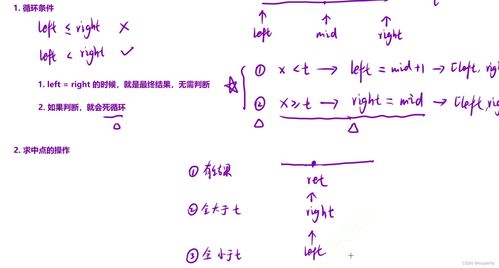 1. 循环条件
left ≤ right ×
left < right ✓
1. left = right 的时候，就是最终结果，无需判断
2. 如果判断，就会死循环
t
left mid right
① x < t → left = mid + 1 → [left, righ
② x ≥ t → right = mid → [left, rig
2. 求中点的操作
① 有结果
ret
② 全大于 t
right
③ 全小于 t
left